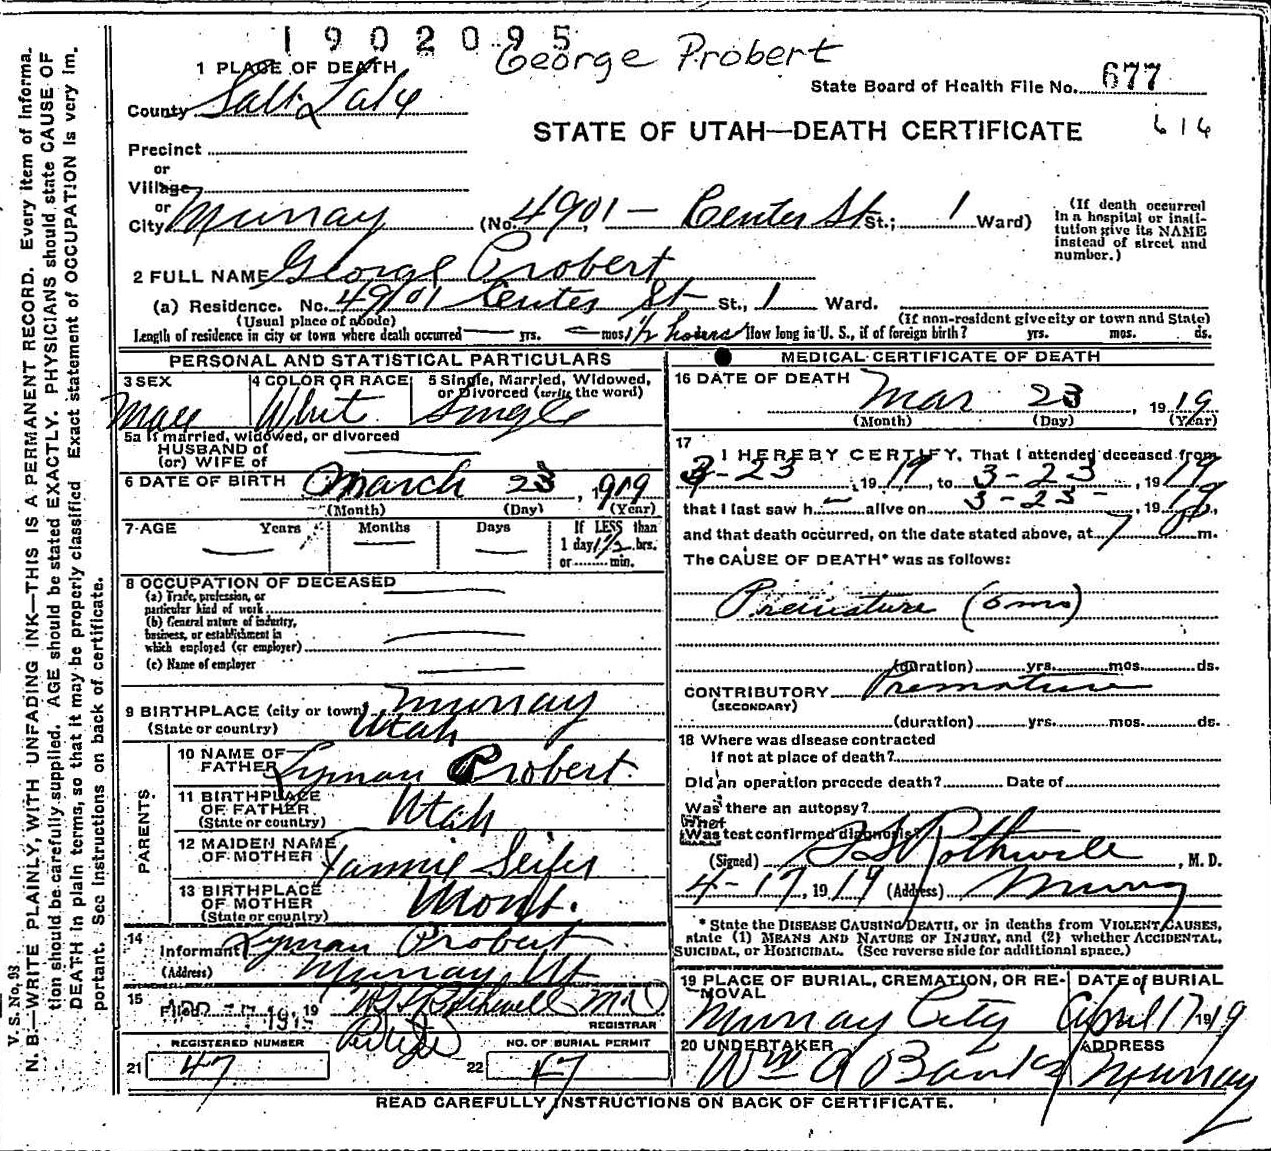 1902095
George Probert
1 PLACE OF DEATH
State Board of Health File No. 677
County Salt Lake
STATE OF UTAH—DEATH CERTIFICATE 616
Precinct
or
Village
or
City Murray (No. 4901 - Center St. St.; 1 Ward)
(If death occurred in a hospital or insti-
tution give its NAME
instead of street and
number.)
2 FULL NAME George Probert
(a) Residence. No. 4901 Center St St., 1 Ward.
(Usual place of abode) (If non-resident give city or town and State)
Length of residence in city or town where death occurred — yrs. — mos. 1 1/2 hours How long in U. S., if of foreign birth? yrs. mos. ds.
PERSONAL AND STATISTICAL PARTICULARS
3 SEX
Male
4 COLOR OR RACE
Whit
5 Single, Married, Widowed,
or Divorced (write the word)
Single
5a If married, widowed, or divorced
HUSBAND of
(or) WIFE of
6 DATE OF BIRTH March 23, 1919
(Month) (Day) (Year)
7-AGE Years Months Days If LESS than
1 day 1 1/2 hrs.
or min.
8 OCCUPATION OF DECEASED
(a) Trade, profession, or
particular kind of work
(b) General nature of industry,
business, or establishment in
which employed (or employer)
(c) Name of employer
9 BIRTHPLACE (city or town) Murray
(State or country) Utah
PARENTS
10 NAME OF
FATHER Lyman Probert
11 BIRTHPLACE
OF FATHER Utah
(State or country)
12 MAIDEN NAME
OF MOTHER Fannie
13 BIRTHPLACE
OF MOTHER Mont.
(State or country)
14
Informant Lyman Probert
(Address) Murray, Ut
15
Filed Apr 17 1919, 19 Rothwell M.D.
REGISTRAR
REGISTERED NUMBER
21 47
NO. OF BURIAL PERMIT
22 47
MEDICAL CERTIFICATE OF DEATH
16 DATE OF DEATH Mar 23, 1919
(Month) (Day) (Year)
17
I HEREBY CERTIFY, That I attended deceased from
3-23, 1919, to 3-23, 1919
that I last saw h — alive on 3-23-, 1919,
and that death occurred, on the date stated above, at 7 m.
The CAUSE OF DEATH* was as follows:
Premature (6 mo)
(duration) yrs. mos. ds.
CONTRIBUTORY Premature
(SECONDARY)
(duration) yrs. mos. ds.
18 Where was disease contracted
If not at place of death?
Did an operation precede death? Date of
Was there an autopsy?
What
Was test confirmed diagnosis?
(Signed) Rothwell, M. D.
4-17, 1919 (Address) Murray
* State the DISEASE CAUSING DEATH, or in deaths from VIOLENT CAUSES,
state (1) MEANS AND NATURE OF INJURY, and (2) whether ACCIDENTAL,
SUICIDAL, or HOMICIDAL. (See reverse side for additional space.)
19 PLACE OF BURIAL, CREMATION, OR RE-
MOVAL
Murray City
DATE of BURIAL
April 17 1919
20 UNDERTAKER
Wm A Banks
ADDRESS
Murray
READ CAREFULLY INSTRUCTIONS ON BACK OF CERTIFICATE.
V. S. No. 93
N. B.—WRITE PLAINLY, WITH UNFADING INK—THIS IS A PERMANENT RECORD. Every item of informa-
tion should be carefully supplied. AGE should be stated EXACTLY. PHYSICIANS should state CAUSE OF
DEATH in plain terms, so that it may be properly classified. Exact statement of OCCUPATION is very im-
portant. See instructions on back of certificate.